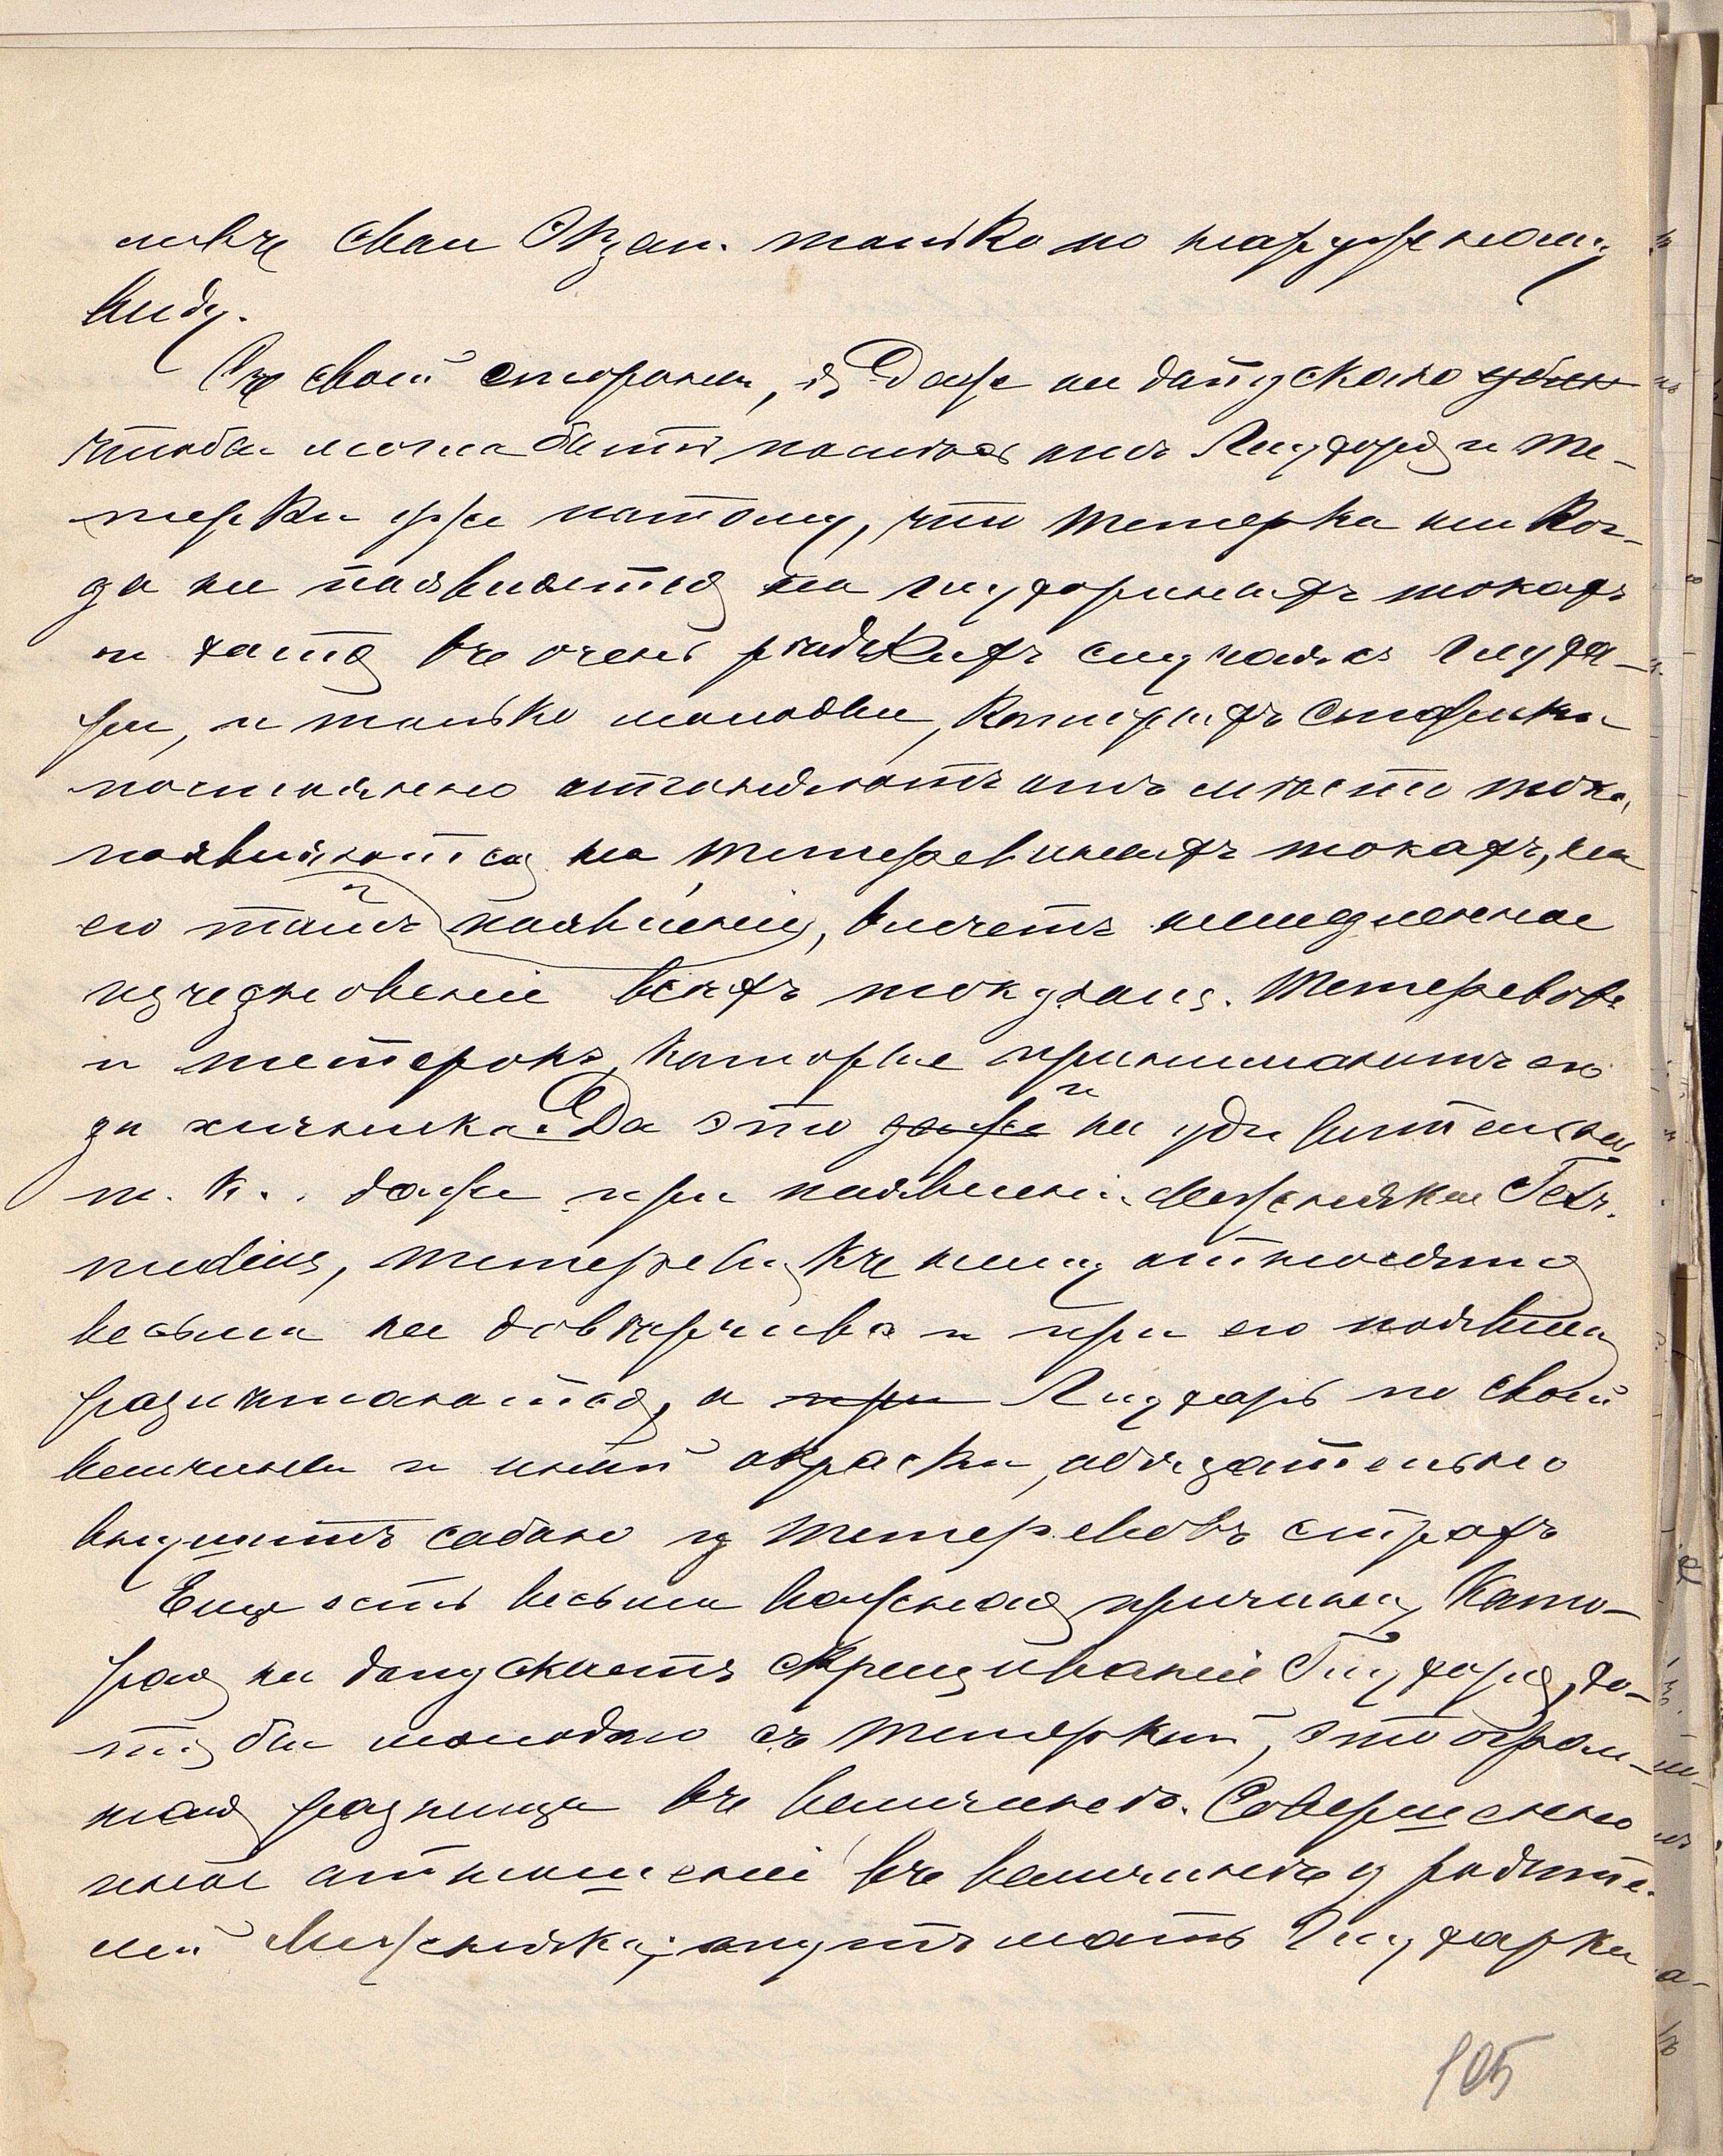 свои экзем. только по наружному
виду.
Съ своей стороны, я даже не допускаю
чтобы могла быть помѣсь отъ Глухаря и те-
терки уже потому, что тетерка никог-
да не появляется на глухариныхъ токахъ
и хотя въ очень рѣдкихъ случаяхъ глуха-
ри, и только молодые, которыхъ старики
постоянно отгоняютъ отъ мѣста тока,
появляются на тетеревиныхъ токахъ, но
его появленіе, влечетъ немедленное
изчезновеніе всѣхъ токующ. Тетеревовъ
и тетерокъ, которые принимаютъ его
за хищника. Да это даже и не удивительно
т. к. даже при появленіи Межняка Tetr.
medius, тетерева къ нему относятся
весьма не довѣрчиво и при его появлен
разлетаются, а при Глухарь по своей
величинѣ и иной окраски, обязательно
внушитъ собою у тетеревовъ страхъ
Еще есть весьма важная причина, кото-
рая не допускаетъ скрещиваніе Глухаря, хо-
тя бы молодаго съ тетеркой, это огром-
ная разница въ величинѣ. Совершенно
иное отношеніе въ величинѣ у родите-
лей Межняка; тутъ мать Глухарка
105